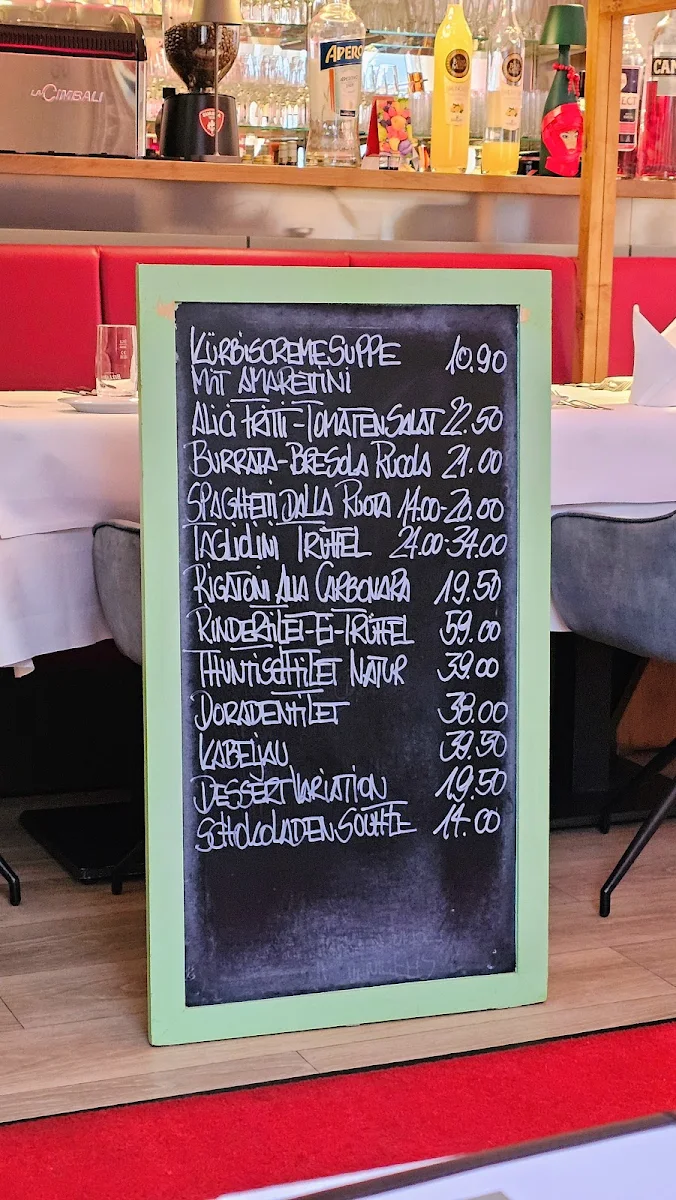 LACIMBALI
APERO
CAN
KÜRBISCREMESUPPE 10.90
MIT AMARETTINI
ALICI FRITTI-TOMATENSALAT 22.50
BURRATA-BRESOLA RUCOLA 21.00
SPAGHETTI DALLA RUOTA 14.00-20.00
TAGLIOLINI TRÜFFEL 24.00-34.00
RIGATONI ALLA CARBONARA 19.50
RINDERFILET-EI-TRÜFFEL 59.00
THUNFISCHFILET NATUR 39.00
DORADENFILET 38.00
KABELJAU 39.50
DESSERTVARIATION 19.50
SCHOKOLADENSOUFFLE 14.00